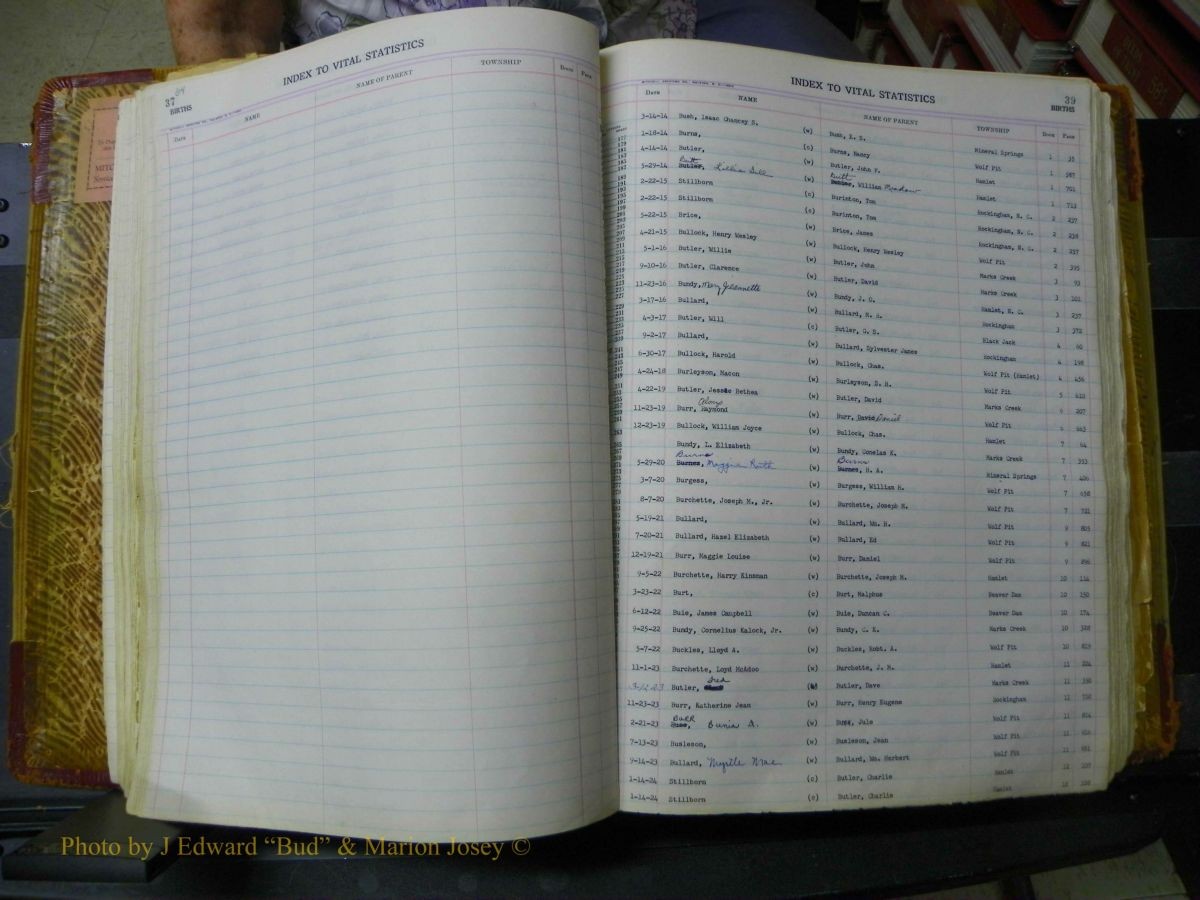 INDEX TO VITAL STATISTICS
37
BIRTHS
Date NAME NAME OF PARENT TOWNSHIP Book Page
INDEX TO VITAL STATISTICS
39
BIRTHS
Date NAME NAME OF PARENT TOWNSHIP Book Page
3-14-14 Bush, Isaac Chancey S. (w) Bush, Mineral Springs 1 35
1-18-14 Burns, (c) Burns, Nancy Wolf Pit 1
4-14-14 Butler, (w) Butler, John F. Hamlet 1 701
5-29-14 Butler, Butt Lillian (w) Butt William Meadow Hamlet 1 713
2-22-15 Stillborn (c) Burinton, Tom Rockingham, N. C. 2 237
2-22-15 Stillborn (c) Burinton, Tom Rockingham, N. C. 2 238
5-22-15 Brice, (w) Brice, James Rockingham, N. C. 2 257
4-21-15 Bullock, Henry Wesley (w) Bullock, Henry Wesley Wolf Pit 2 395
5-1-16 Butler, Willie (w) Butler, John Marks Creek 3 93
9-10-16 Butler, Clarence (w) Butler, David Marks Creek 3 101
11-23-16 Bundy, Mary Jeannette (w) Bundy, J. O. Hamlet, N. C. 3 237
3-17-16 Bullard, (w) Bullard, Rockingham 3 372
4-3-17 Butler, Will (c) Butler, G. S. Black Jack 4 60
9-2-17 Bullard, (w) Bullard, Sylvester James Rockingham 4 198
6-30-17 Bullock, Harold (w) Bullock, Chas. Wolf Pit (Hamlet) 4 456
4-24-18 Burleyson, Macon (w) Burleyson, D. H. Wolf Pit 5 410
4-22-19 Butler, Jessie Bethea (w) Butler, David Marks Creek 6 207
11-23-19 Burr, Raymond Alony (w) Burr, David Daniel Wolf Pit 6 663
12-23-19 Bullock, William Joyce (w) Bullock, Chas. Hamlet 7 64
Bundy, L. Elizabeth (w) Bundy, Conelas K. Marks Creek 7 353
5-29-20 Burnes, Burns Maggie Ruth (w) Burns Burnes, H. A. Mineral Springs 7 406
3-7-20 Burgess, (w) Burgess, William H. Wolf Pit 7 458
8-7-20 Burchette, Joseph M., Jr. (w) Burchette, Joseph M. Wolf Pit 7 721
5-19-21 Bullard, (w) Bullard, Wm. H. Wolf Pit 9 805
7-20-21 Bullard, Hazel Elizabeth (w) Bullard, Ed Wolf Pit 9 821
12-19-21 Burr, Maggie Louise (w) Burr, Daniel Wolf Pit 9 896
9-5-22 Burchette, Harry Kinsman (w) Burchette, Joseph M. Hamlet 10 114
3-23-22 Burt, (c) Burt, Malphus Beaver Dam 10 150
6-12-22 Buie, James Campbell (w) Buie, Duncan C. Beaver Dam 10 174
9-25-22 Bundy, Cornelius Kalock, Jr. (w) Bundy, C. K. Marks Creek 10 328
5-7-22 Buckles, Lloyd A. (w) Buckles, Robt. A. Wolf Pit 10 819
11-1-23 Burchette, Loyd McAdoo (w) Burchette, J. M. Hamlet 11 224
Butler, Fred Butler, Dave Marks Creek 11
11-23-23 Burr, Katherine Jean (w) Burr, Henry Eugene Rockingham 11
2-21-23 Burr Bunia A. (w) Jule Wolf Pit 11
7-13-23 Busleson, (w) Busleson, Jean Wolf Pit 11
9-14-23 Bullard, Myrtle Mae (w) Bullard, Wm. Herbert Wolf Pit 11
1-14-24 Stillborn (c) Butler, Charlie Hamlet 12
1-14-24 Stillborn (c) Butler, Charlie Hamlet 12
Photo by J Edward “Bud” & Marion Josey ©